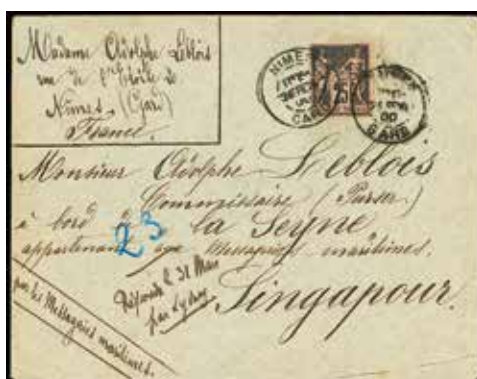 Madame Adolphe Leblois
rue de l'Etoile 2
Nimes (Gard)
France.
NIMES
GARE
25
GARE
Monsieur Adolphe Leblois
Commissaire (Purser)
à bord de la Seyne
appartenant aux Messageries maritimes.
23
Répondu le 31 Mai
par Sydney
Singapour.
par les Messageries maritimes.